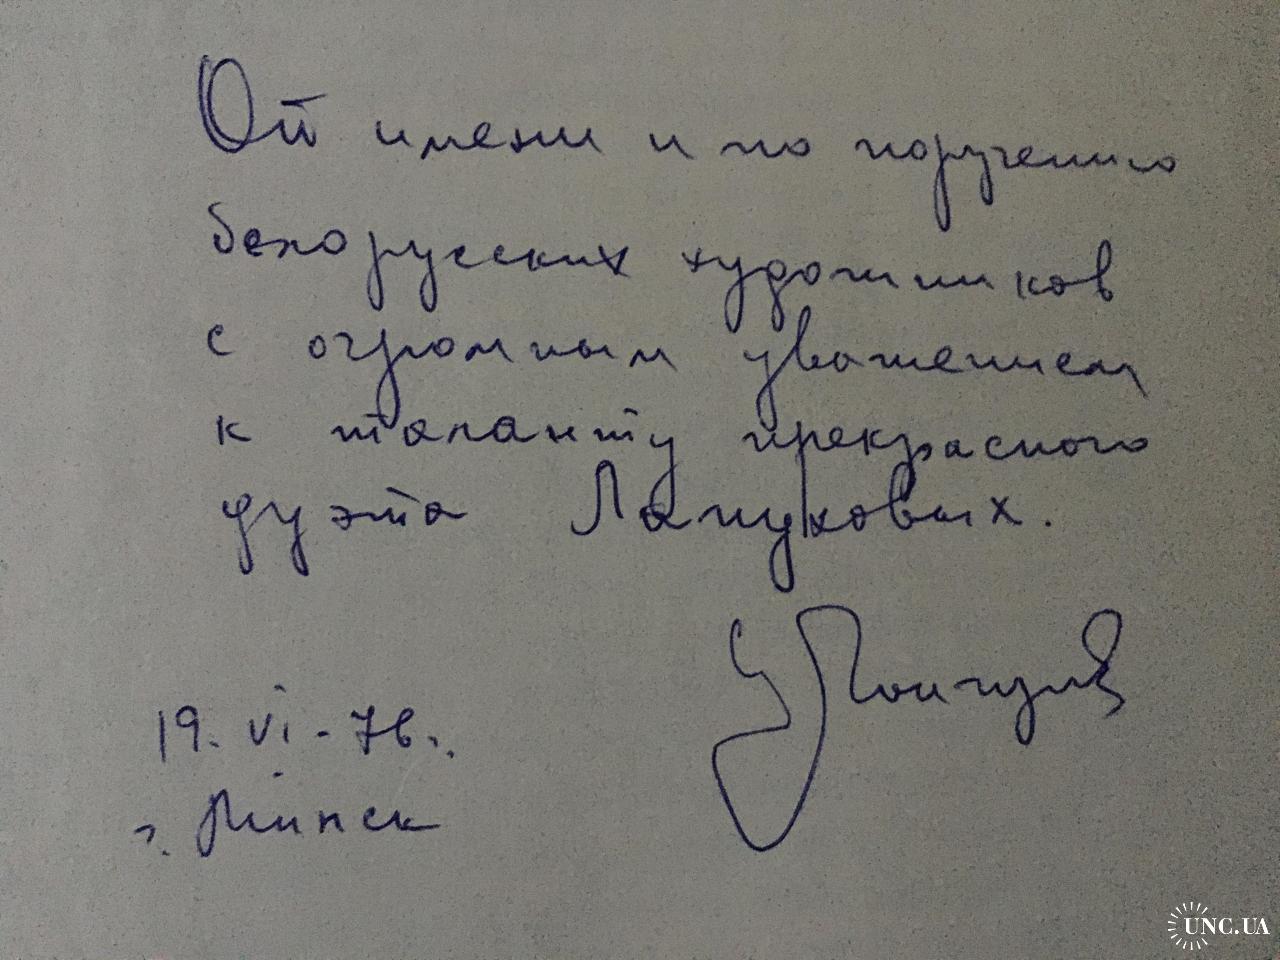 От имени и по поручению
белорусских художников
с огромным уважением
к таланту прекрасного
дуэта
19. VI - 76.
г. Минск
UNC.UA